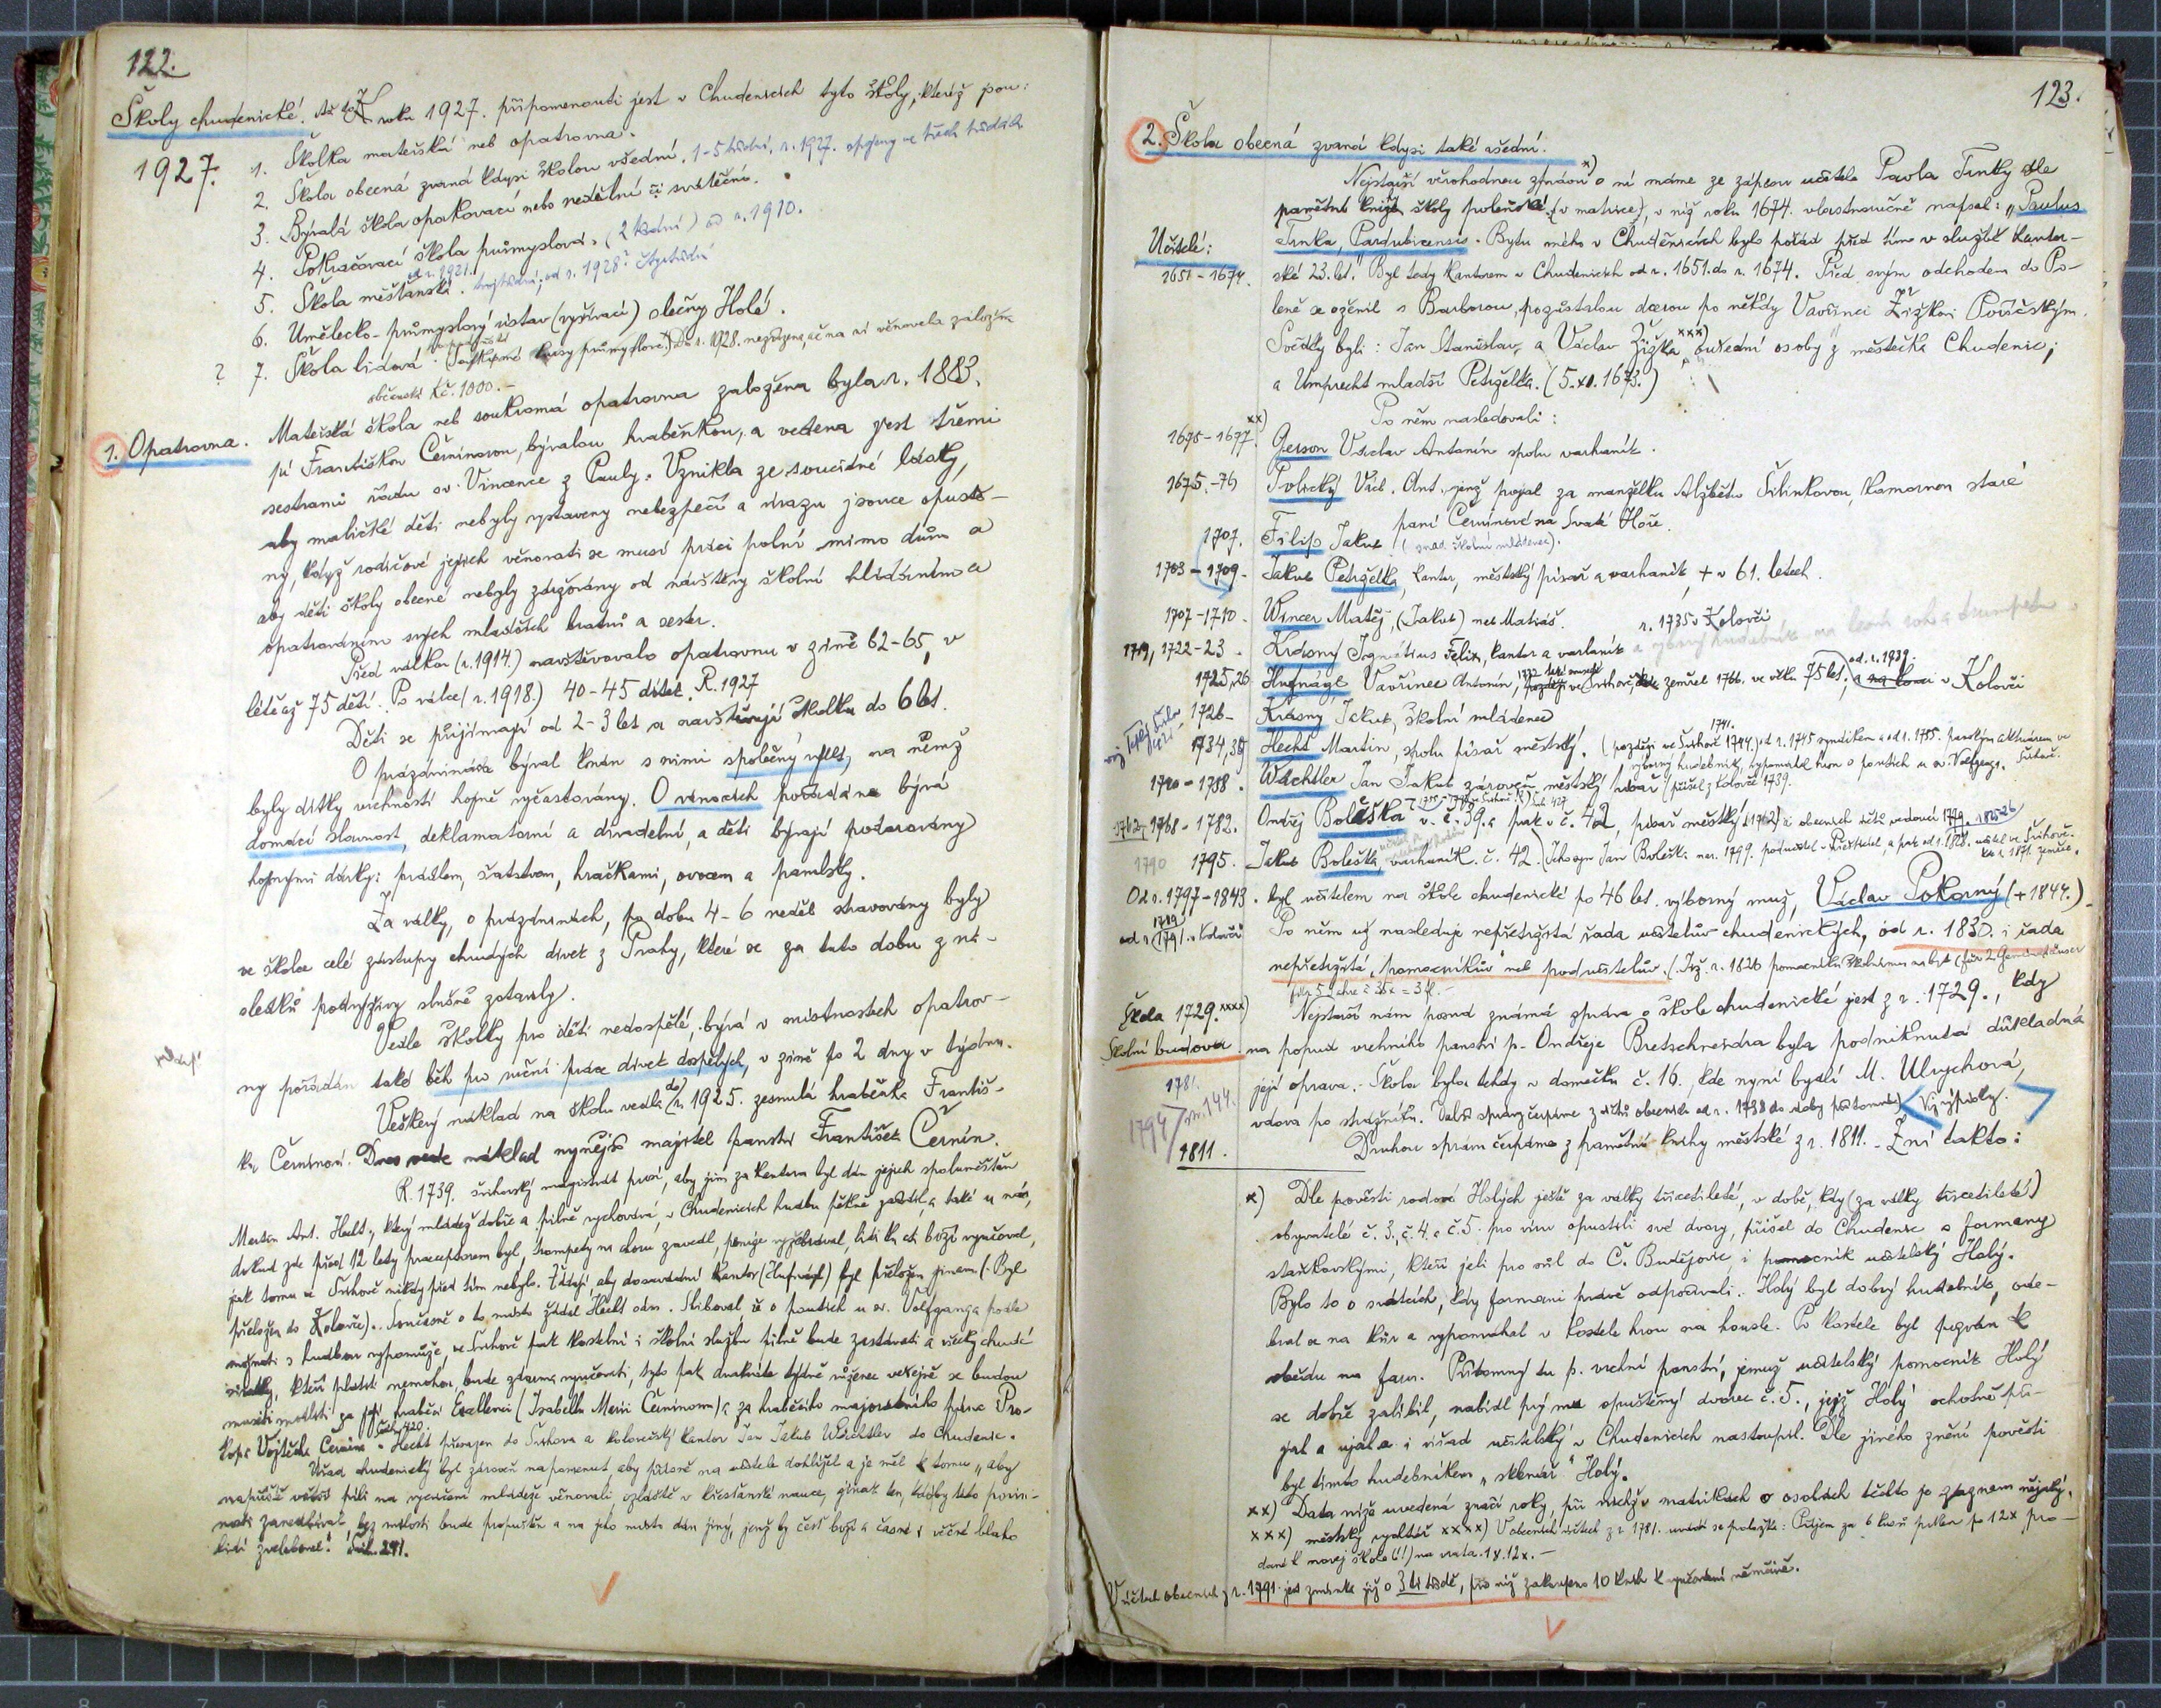 122.
Školy chudenické. roku 1927. připomenouti jest v Chudenicích tyto školy, kteréž jsou:
1927.
1. Školka mateřská neb opatrovna.
2. Škola obecná zvaná kdysi školou všední. 1-5třídní, r. 1927. spojeny ve třech třídách
3. Bývalá škola opakovací nebo nedělní či sváteční.
4. Pokračovací škola průmyslová. (2 třídní) od r. 1910.
5. Škola měšťanská od r. 1921. trojtřídní; od r. 1928? čtyřtřídní
6. Umělecko-průmyslový ústav (vyšívací) slečny Holé.
? 7. Škola lidová. kursy průmyslové.) Do r. 1928. nezřízena, ač na ni věnovala záložna
občanská Kč. 1000.-
1. Opatrovna. Mateřská škola neb soukromá opatrovna založena byla r. 1883.
jí Františkou Černínovou, bývalou hraběnkou, a vedena jest třemi
sestrami řádu sv. Vincence z Pauly. Vznikla ze soucitné lásky,
aby maličké děti nebyly vystaveny nebezpečí a úrazu jsouce opuště-
ny, když rodičové jejich věnovati se musí práci polní mimo dům a
aby děti školy obecné nebyly zdržovány od návštěvy školní hlídáním a
opatrováním svých mladších bratrů a sester.
Před válkou (r. 1914.) navštěvovalo opatrovnu v zimě 62-65, v
létě až 75 dětí. Po válce (r. 1918.) 40-45 dítek. R. 1927
Děti se přijímají od 2-3 let a navštěvují školku do 6 let.
O prázdninách býval konán s nimi společný výlet, na němž
byly dítky vrchností hojně vyčastovány. O vánocích pořádána bývá
domácí slavnost, deklamatorní a divadelní, a děti bývají podarovány
hojnými dárky: prádlem, šatstvem, hračkami, ovocem a pamlsky.
Za války, o prázdninách, po dobu 4-6 neděl stravovány byly
ve škole celé zástupy chudých dívek z Prahy, které se za tuto dobu z ná-
sledků podvýživy slušně zotavily.
Vedle školky pro děti nedospělé bývá v místnostech opatrov-
ny pořádán také běh pro ruční práce dívek dospělých, v zimě po 2 dny v týdnu.
Veškerý náklad na školu vedla do r. 1925. zesnulá hraběnka Františ-
ka Černínová. Dnes vede náklad nynější majitel panství František Černín.
R. 1739. švihovský magistrát prosí, aby jim za kantora byl dán jejich spoluměšťan
Martin Ant. Hecht, který mládež dobře a pilně vychovává, v Chudenicích hudbu pěkně zařídil, a také u nás,
dokud zde před 12 lety praeceptorem byl, trompety na choru zavedl, peníze vyzískával, lidi ke cti boží vyučoval,
jak tomu ve Švihově nikdy před tím nebylo. Žádají aby dosavadní kantor (Hufnágl) byl přeložen jinam. (Byl
přeložen do Koloveče). Současně o to místo žádal Hecht sám. Sliboval že o poutích u sv. Wolfganga podle
možnosti s hudbou vypomůže, ve Švihově pak kostelní i školní službu pilně bude zastávati a všecky chudé
sirotky, kteří platiti nemohou, bude zdarma vyučovati, tyto pak dvakráte týdně růženec veřejně se budou
muset modliti za její hraběcí Excellenci (Isabellu Marii Černínovou) a za hraběcího majorátního pána Pro-
kopa Vojtěcha Černína. Hecht převzen do Švihova a kolovečský kantor Jan Jakub Wächtler do Chudenic.
Úřad chudenický byl zároveň napomenut, aby přísně na učitele dohlížel a je měl k tomu „aby
napříště větší píli na vyučení mládeže věnovali zvláště v křesťanské nauce, jinak ten, kdo by tuto povin-
nost zanedbával bez milosti bude propuštěn a na jeho místo dán jiný, jenž by čest boží a časné i věčné blaho
lidí zveleboval."
123.
2. Škola obecná zvaná kdysi také všední.
Nejstarší věrohodnou zprávu x) o ní máme ze zápisu učitele Pavla Trnky dle
pamětní knihy školy poleňské (v matrice), v níž roku 1674. vlastnoručně napsal: „Paulus
Učitelé: Trnka, Pardubicensis. Bytu mého v Chuděnicích bylo pořád před tím v službě kantor-
1651-1674. ské 23. let." Byl tedy kantorem v Chudenicích od r. 1651. do r. 1674. Před svým odchodem do Po-
leně se oženil s Barborou, pozůstalou dcerou po někdy Vavřinci Žižkovi Poříčským.
Svědky byli: Jan Stanislav, a Václav Žižka, xxx) úřední osoby z městečka Chudenic;
a Umprecht mladší Petrželka. (5.XI.1673.)
Po něm následovali:
1675-1677 xx) Gerson Václav Antonín spolu varhaník.
1675.-76 Polický Václ. Ant. jenž pojal za manželku Alžbětu Šilinkovou, komornou staré
paní Černínové na Svaté Hoře.
1707. Filip Jakub (snad školní mládenec).
1703-1709. Jakub Petrželka, kantor, městský písař a varhaník, + v 61. letech.
1707-1710. Wincer Matěj, (Jakub) neb Matiáš. r. 1735 v Kolovči
1719, 1722-23. Krásný Ignátius Felix, kantor a varhaník
1725,26 Hufnágl Vavřinec Antonín, ve Švihově, zemřel 1766. ve věku 75 let, od r. 1739. v Kolovči
1726- Krásný Jakub, školní mládenec
1734,35 Hecht Martin, spolu písař městský. (později ve Švihově 1744.) od r. 1745 syndikem a od r. 1755. panským aktuárem ve
výborný hudebník, vypomáhal hrou o poutích u sv. Wolfganga. Švihově.
1740-1758. Wächtler Jan Jakub zároveň městský písař (přišel z Koloveče 1739.
1762 1768-1782. Ondřej Boleška v č. 39. a pak v č. 42, písař městský (1762) v obecních účtů vedoucí 1779.
1790 1795. Jakub Boleška, varhaník. č. 42. (Jeho syn Jan Boleška nar. 1799. podučitel v Předslavi, a pak od r. 1828. učitel ve Švihově.
kde r. 1871. zemřel.
Od r. 1797-1843. byl učitelem na škole chudenické po 46 let výborný muž, Václav Pokorný (+ 1844.)
od r. 1791 v Kolovči Po něm už následuje nepřetržitá řada učitelův chudenických, od r. 1830. i řada
nepřetržitá „pomocníkův" neb podučitelův.
Škola 1729. xxxx) Nejstarší nám posud známá zpráva o škole chudenické jest z r. 1729., kdy
Školní budova. na popud vrchního panství p. Ondřeje Bretschneidra byla podniknuta důkladná
1781. její oprava. Škola byla tehdy v domečku č. 16., kde nyní bydlí M. Ulrychová,
1794 vdova po strážníku. Další zprávy čerpáme z účtů obecních od r. 1738 do doby přítomné. Viz výpisky.
1811. Druhou zprávu čerpáme z pamětní knihy městské z r. 1811. Zní takto:
x) Dle pověsti rodové Holých ještě za války třicetileté, v době, kdy (za války třicetileté)
obyvatelé č. 3., č. 4. a č. 5. pro víru opustili své dvory, přišel do Chudenic s formany
staňkovskými, kteří jeli pro sůl do Č. Budějovic, i pomocník učitelský Holý.
Bylo to o svátcích, kdy formani právě odpočívali. Holý byl dobrý hudebník, ode-
bral se na kůr a vypomáhal v kostele hrou na housle. Po kostele byl pozván k
obědu na faru. Přítomný tu p. vrchní panství, jemuž učitelský pomocník Holý
se dobře zalíbil, nabídl prý mu opuštěný dvorec č. 5., jejž Holý ochotně při-
jal a ujal a i úřad učitelský v Chudenicích nastoupil. Dle jiného znění pověsti
byl tímto hudebníkem „sklenář" Holý.
xx) Data níže uvedená značí roky, při nichž v matrikách o osobách těchto je záznam nějaký.
xxx) městský rychtář xxxx) V obecních účtech z r. 1781. uvádí se položka: Příjem za 6 kusů prken po 12x pro-
dané k novej škole (!) na vrata. 1 zl. 12x.-
V účtech obecních z r. 1791. jest zmínka již o 3tí třídě, pro niž zakoupeno 10 knih k vyučování němčině.